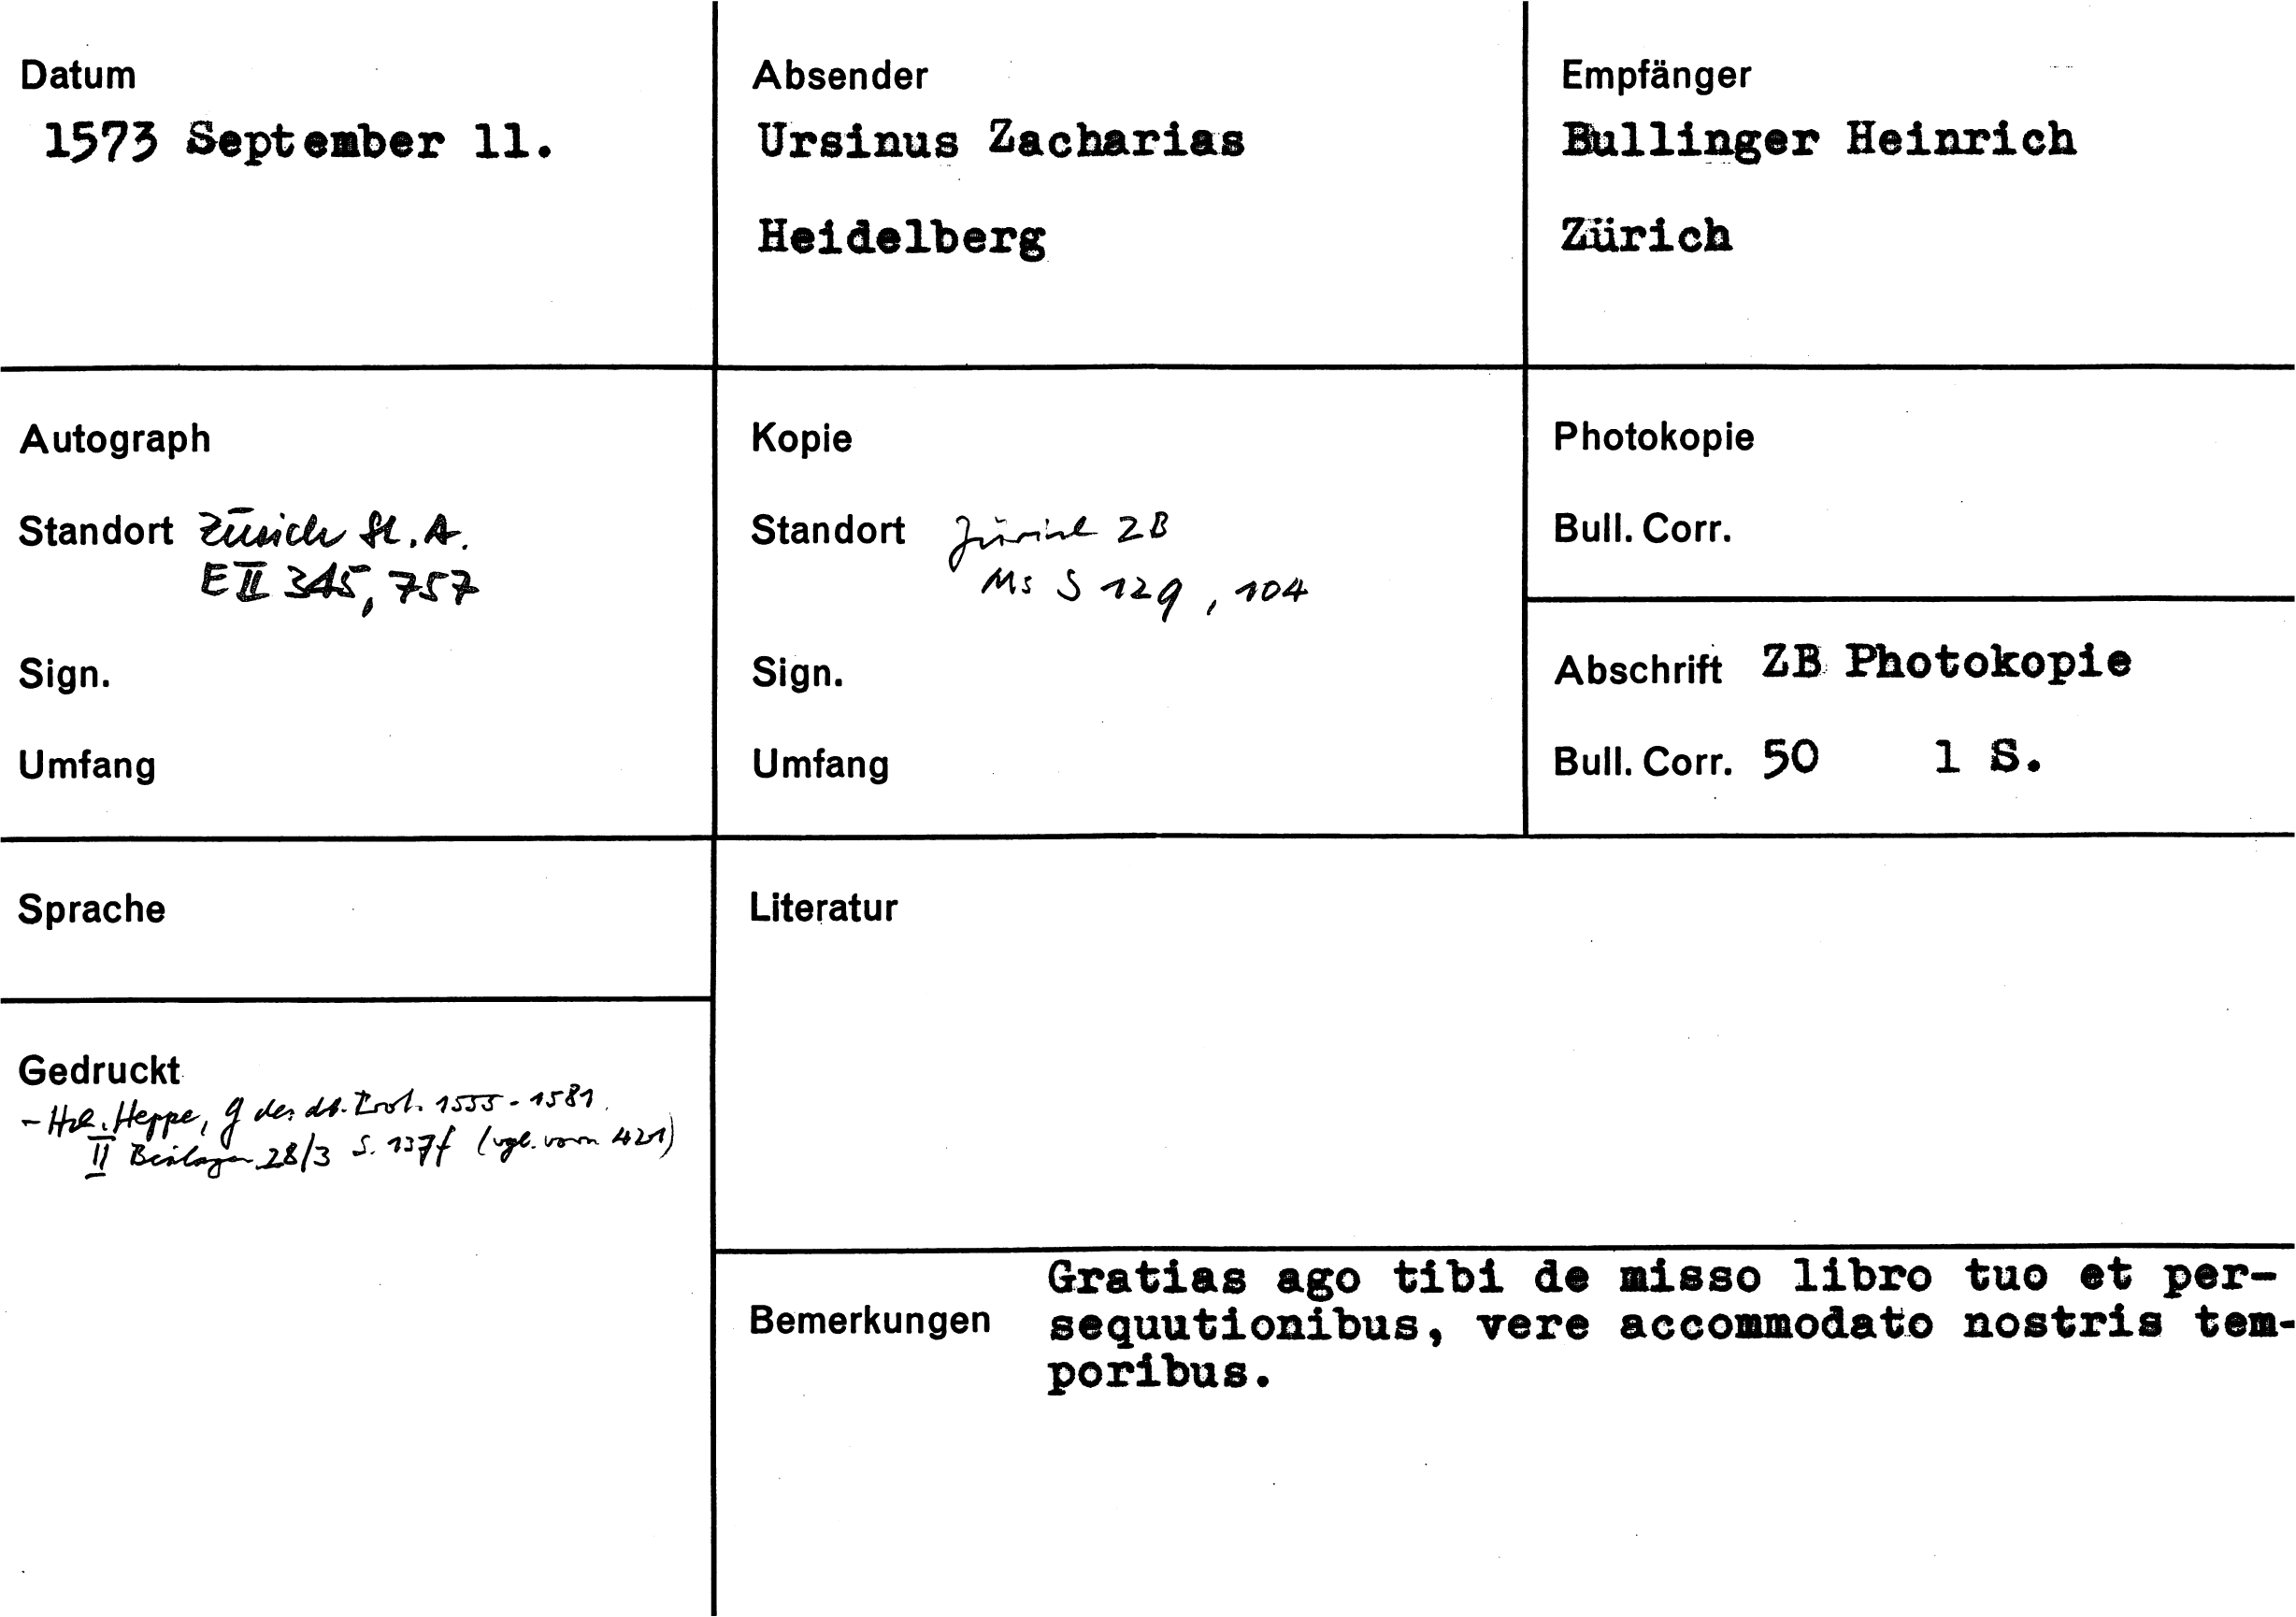 Datum
1573 September 11.
Absender
Ursinus Zacharias
Heidelberg
Empfänger
Bullinger Heinrich
Zürich
Autograph
Standort Zürich St. A.
E II 345, 757
Sign.
Umfang
Kopie
Standort Zürich ZB
Ms S 129, 104
Sign.
Umfang
Photokopie
Bull. Corr.
Abschrift ZB Photokopie
Bull. Corr. 50 1 S.
Sprache
Gedruckt
- Heppe, g des dt. Prot. 1555-1581.
II Beilagen 28/3 S. 137f (vgl. vorn 421)
Literatur
Bemerkungen
Gratias ago tibi de misso libro tuo et per-
sequutionibus, vere accommodato nostris tem-
poribus.